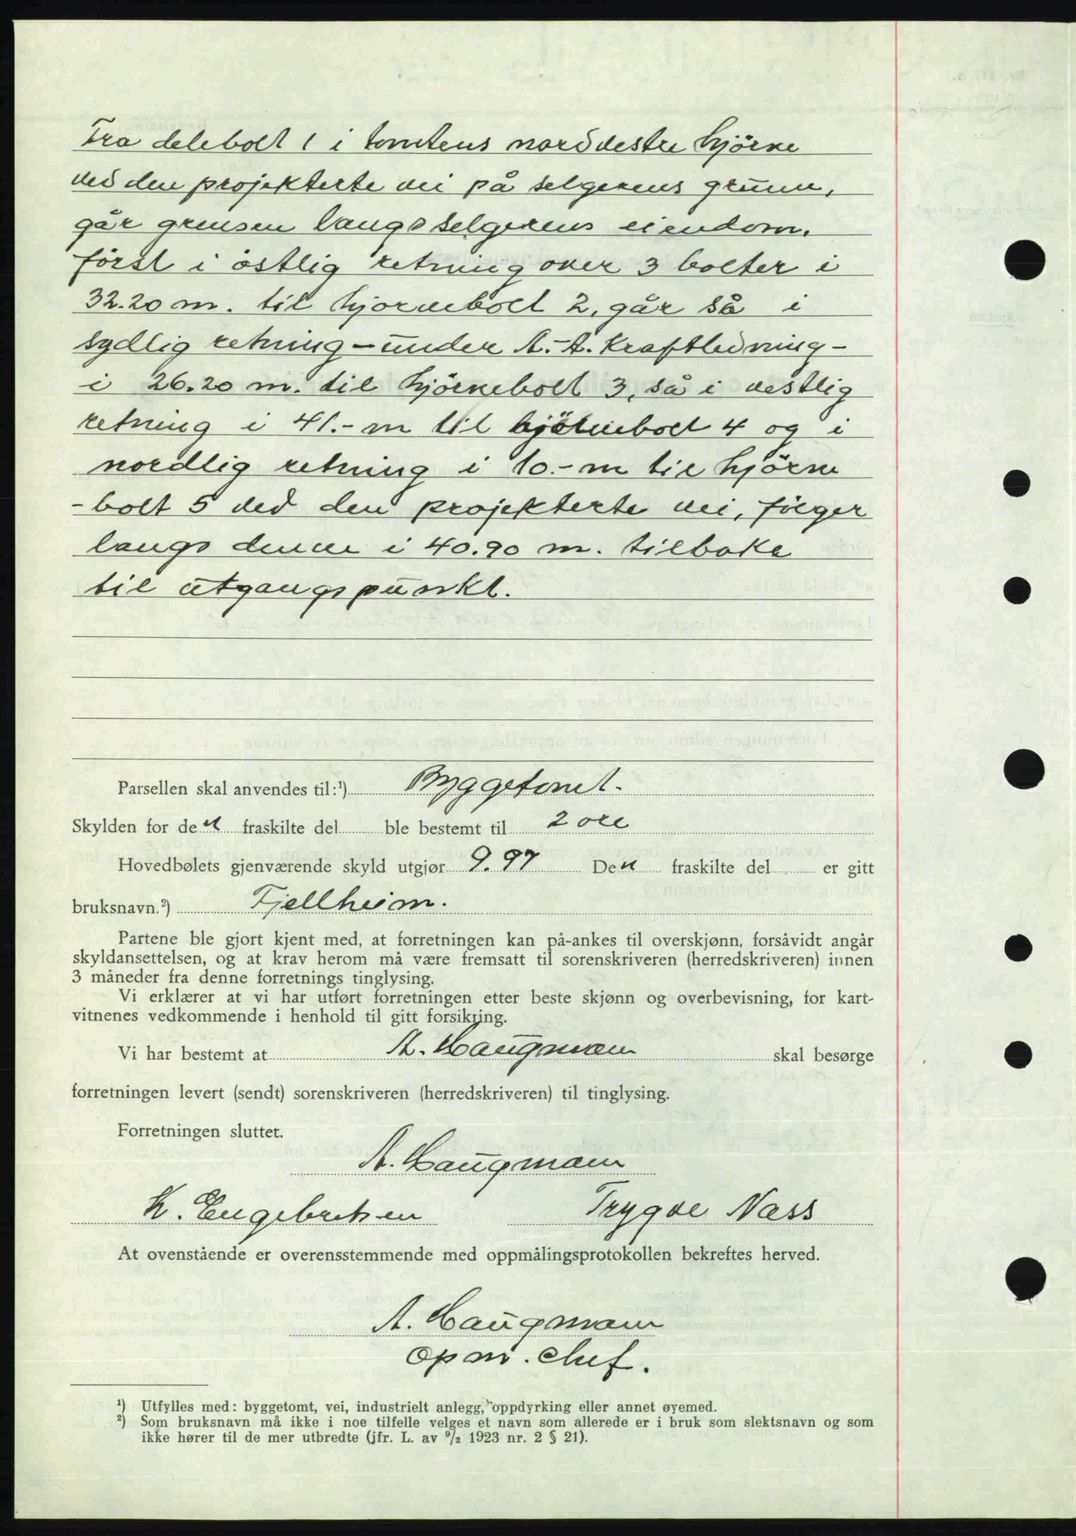 Fra delebolt 1 i tomtens nordvestre hjörne
ved den projekterte vei på selgerens grunn,
går grensen langs selgerens eiendom,
först i östlig retning over 3 bolter i
32.20 m. til hjörnebolt 2, går så i
sydlig retning – under A.-A. Kraftledning –
i 26.20 m. til hjörnebolt 3, så i vestlig
retning i 41.- m til hjörnebolt 4 og i
nordlig retning i 10.- m til hjörne
- bolt 5 ved den projekterte vei, fölger
langs denne i 40.90 m. tilbake
til utgangspunkt.
Parsellen skal anvendes til:¹) Byggetomt.
Skylden for den fraskilte del ble bestemt til 2 öre
Hovedbølets gjenværende skyld utgjør 9.97 Den fraskilte del er gitt
bruksnavn.²) Fjellheim.
Partene ble gjort kjent med, at forretningen kan på-ankes til overskjønn, forsåvidt angår
skyldansettelsen, og at krav herom må være fremsatt til sorenskriveren (herredskriveren) innen
3 måneder fra denne forretnings tinglysing.
Vi erklærer at vi har utført forretningen etter beste skjønn og overbevisning, for kart-
vitnenes vedkommende i henhold til gitt forsikring.
Vi har bestemt at A. Haugmann skal besørge
forretningen levert (sendt) sorenskriveren (herredskriveren) til tinglysing.
Forretningen sluttet.
A. Haugmann
K. Engebretsen Trygve Næss
At ovenstående er overensstemmende med oppmålingsprotokollen bekreftes herved.
A. Haugmann
Opm. chef.
¹) Utfylles med: byggetomt, vei, industrielt anlegg, oppdyrking eller annet øyemed.
²) Som bruksnavn må ikke i noe tilfelle velges et navn som allerede er i bruk som slektsnavn og som
ikke hører til de mer utbredte (jfr. L. av ⁹/₂ 1923 nr. 2 § 21).